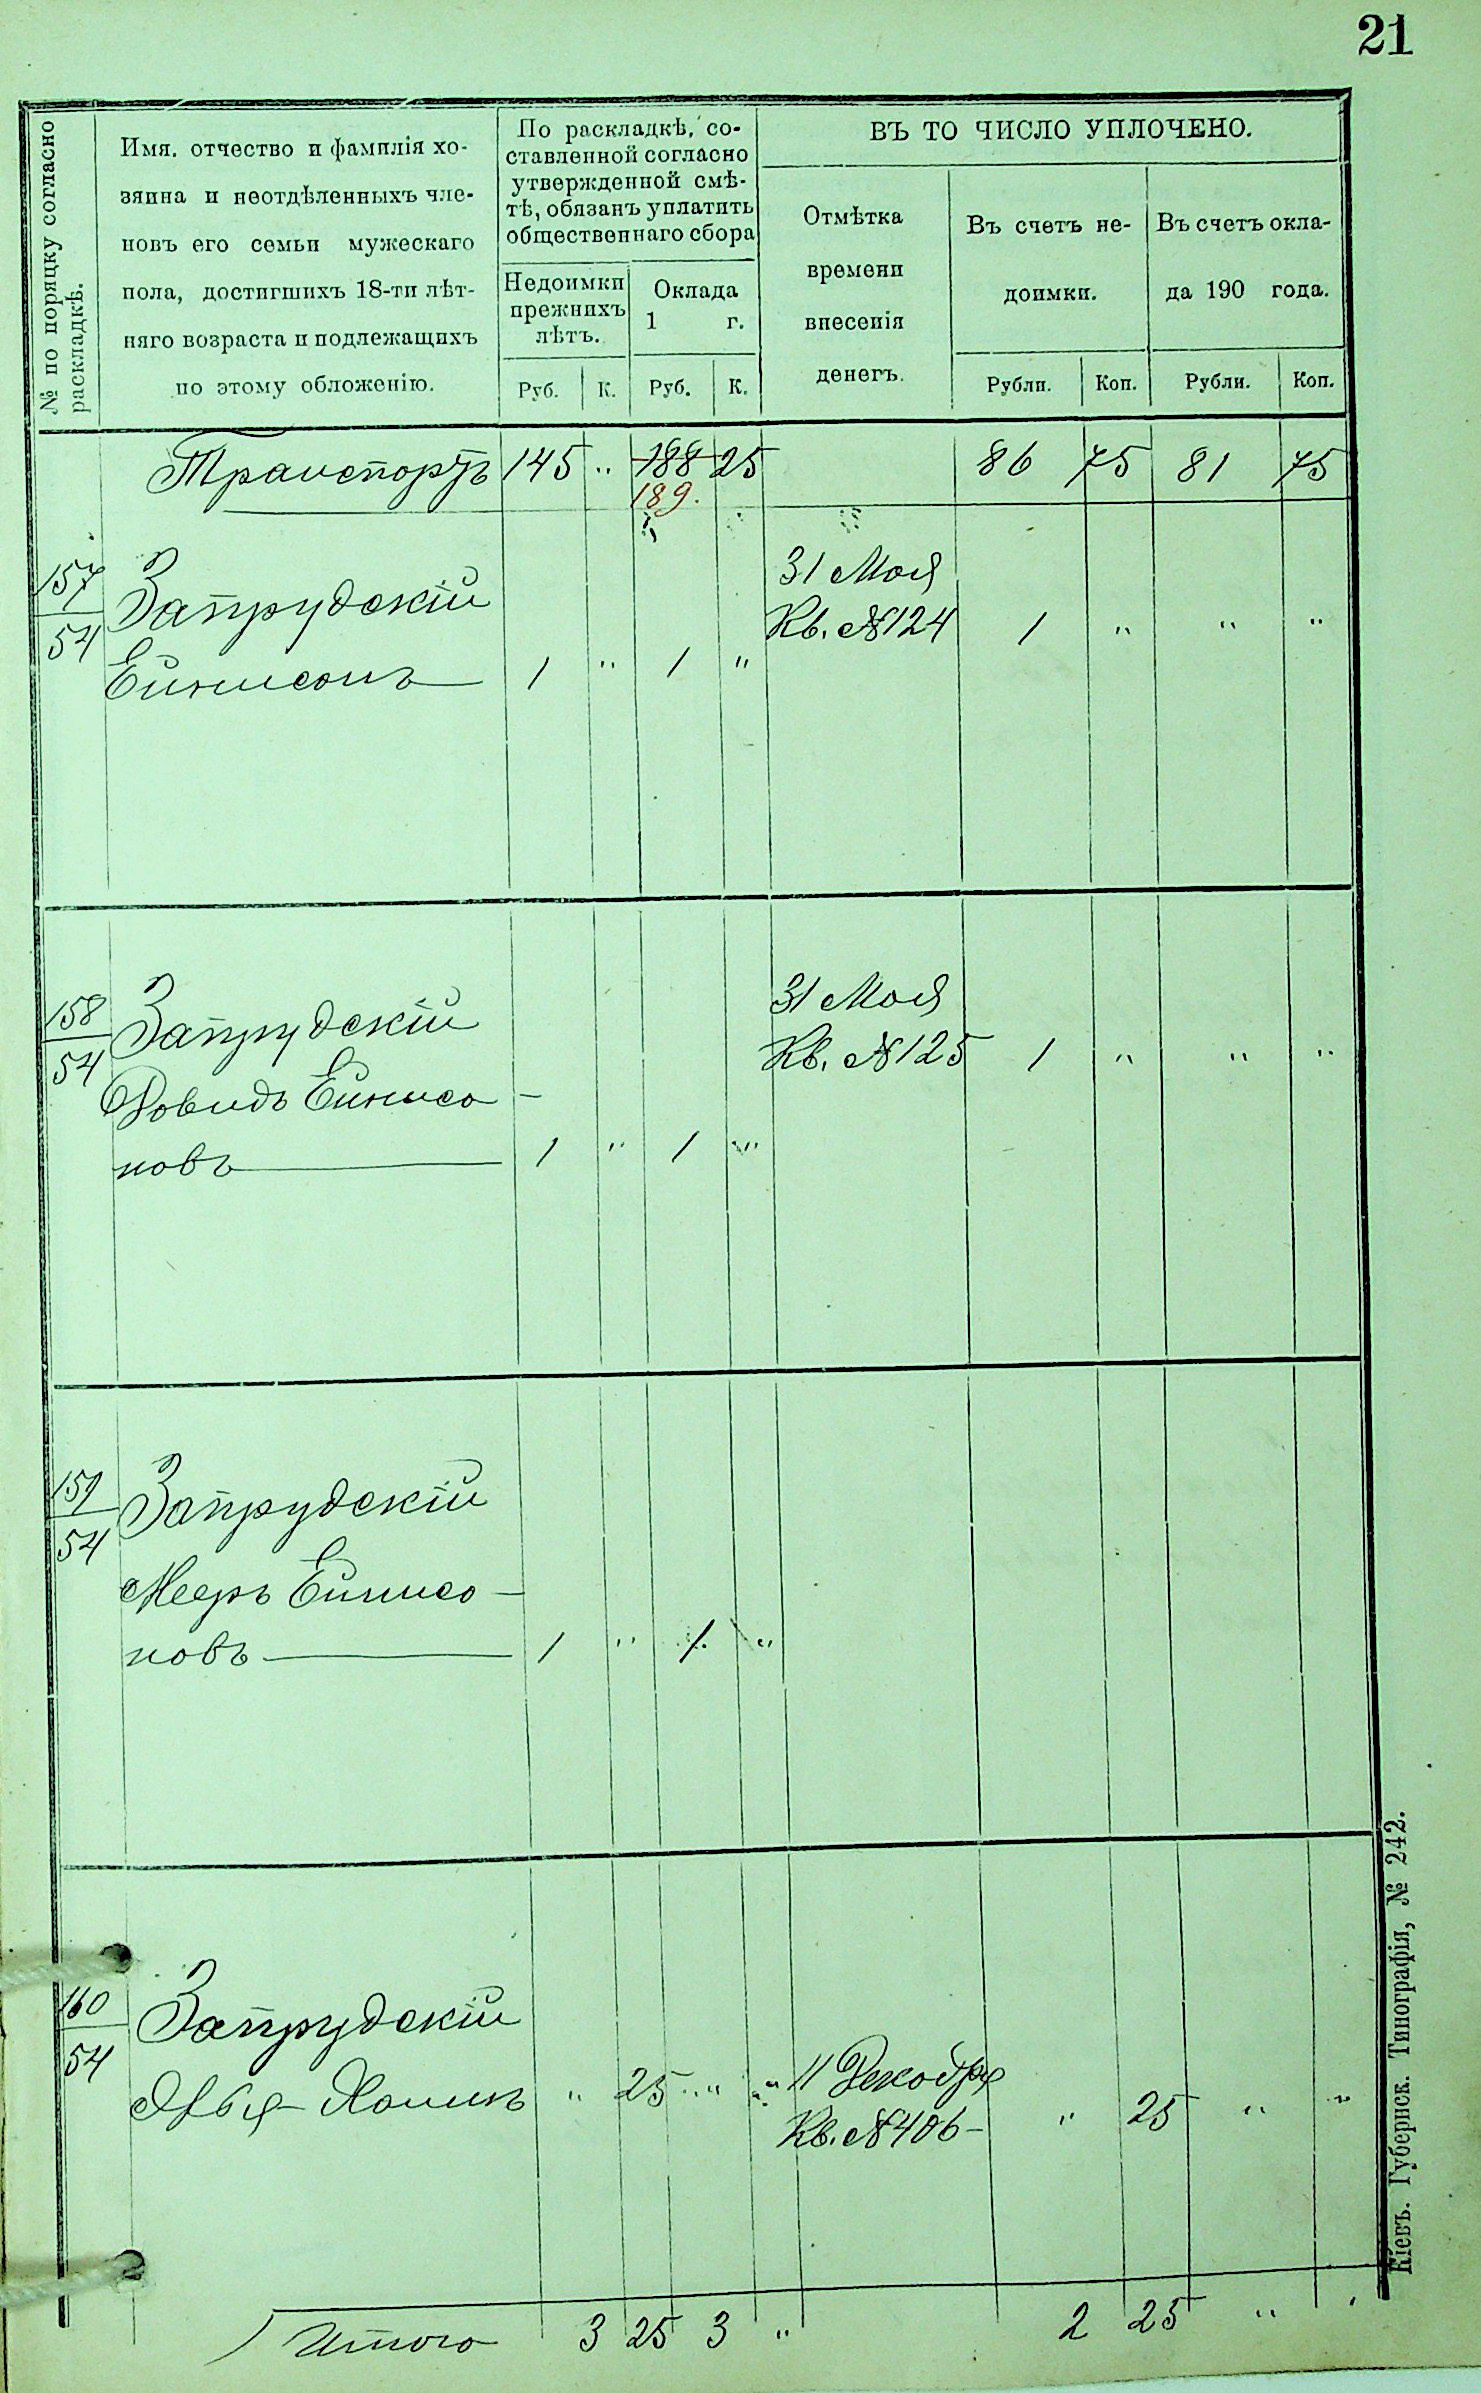 21
№ по порядку согласно
раскладкѣ.
Имя. отчество и фамилія хо-
зяина и неотдѣленныхъ чле-
новъ его семьи мужескаго
пола, достигшихъ 18-ти лѣт-
няго возраста и подлежащихъ
по этому обложенію.
По раскладкѣ, со-
ставленной согласно
утвержденной смѣ-
тѣ, обязанъ уплатить
общественнаго сбора
Недоимки
прежнихъ
лѣтъ.
Оклада
1 г.
Руб. К. Руб. К.
ВЪ ТО ЧИСЛО УПЛОЧЕНО.
Отмѣтка
времени
внесенія
денегъ.
Въ счетъ не-
доимки.
Въ счетъ окла-
да 190 года.
Рубли. Коп. Рубли. Коп.
Транспортъ 145 " 188 25 86 75 81 75
189.
157
54
Запрудскій
Ейнисонъ 1 " 1 "
31 Мая
Кв. №124 1 " " "
158
54
Запрудскій
Довидъ Ейнисо-
новъ 1 " 1 "
31 Мая
Кв. №125 1 " " "
159
54
Запрудскій
Мееръ Ейнисо-
новъ 1 " 1 "
160
54
Запрудскій
Хаимъ " 25 " "
11 Декабря
Кв. №406- " 25 " "
Итого 3 25 3 " 2 25 "
Кіевъ. Губернск. Типографія, № 242.